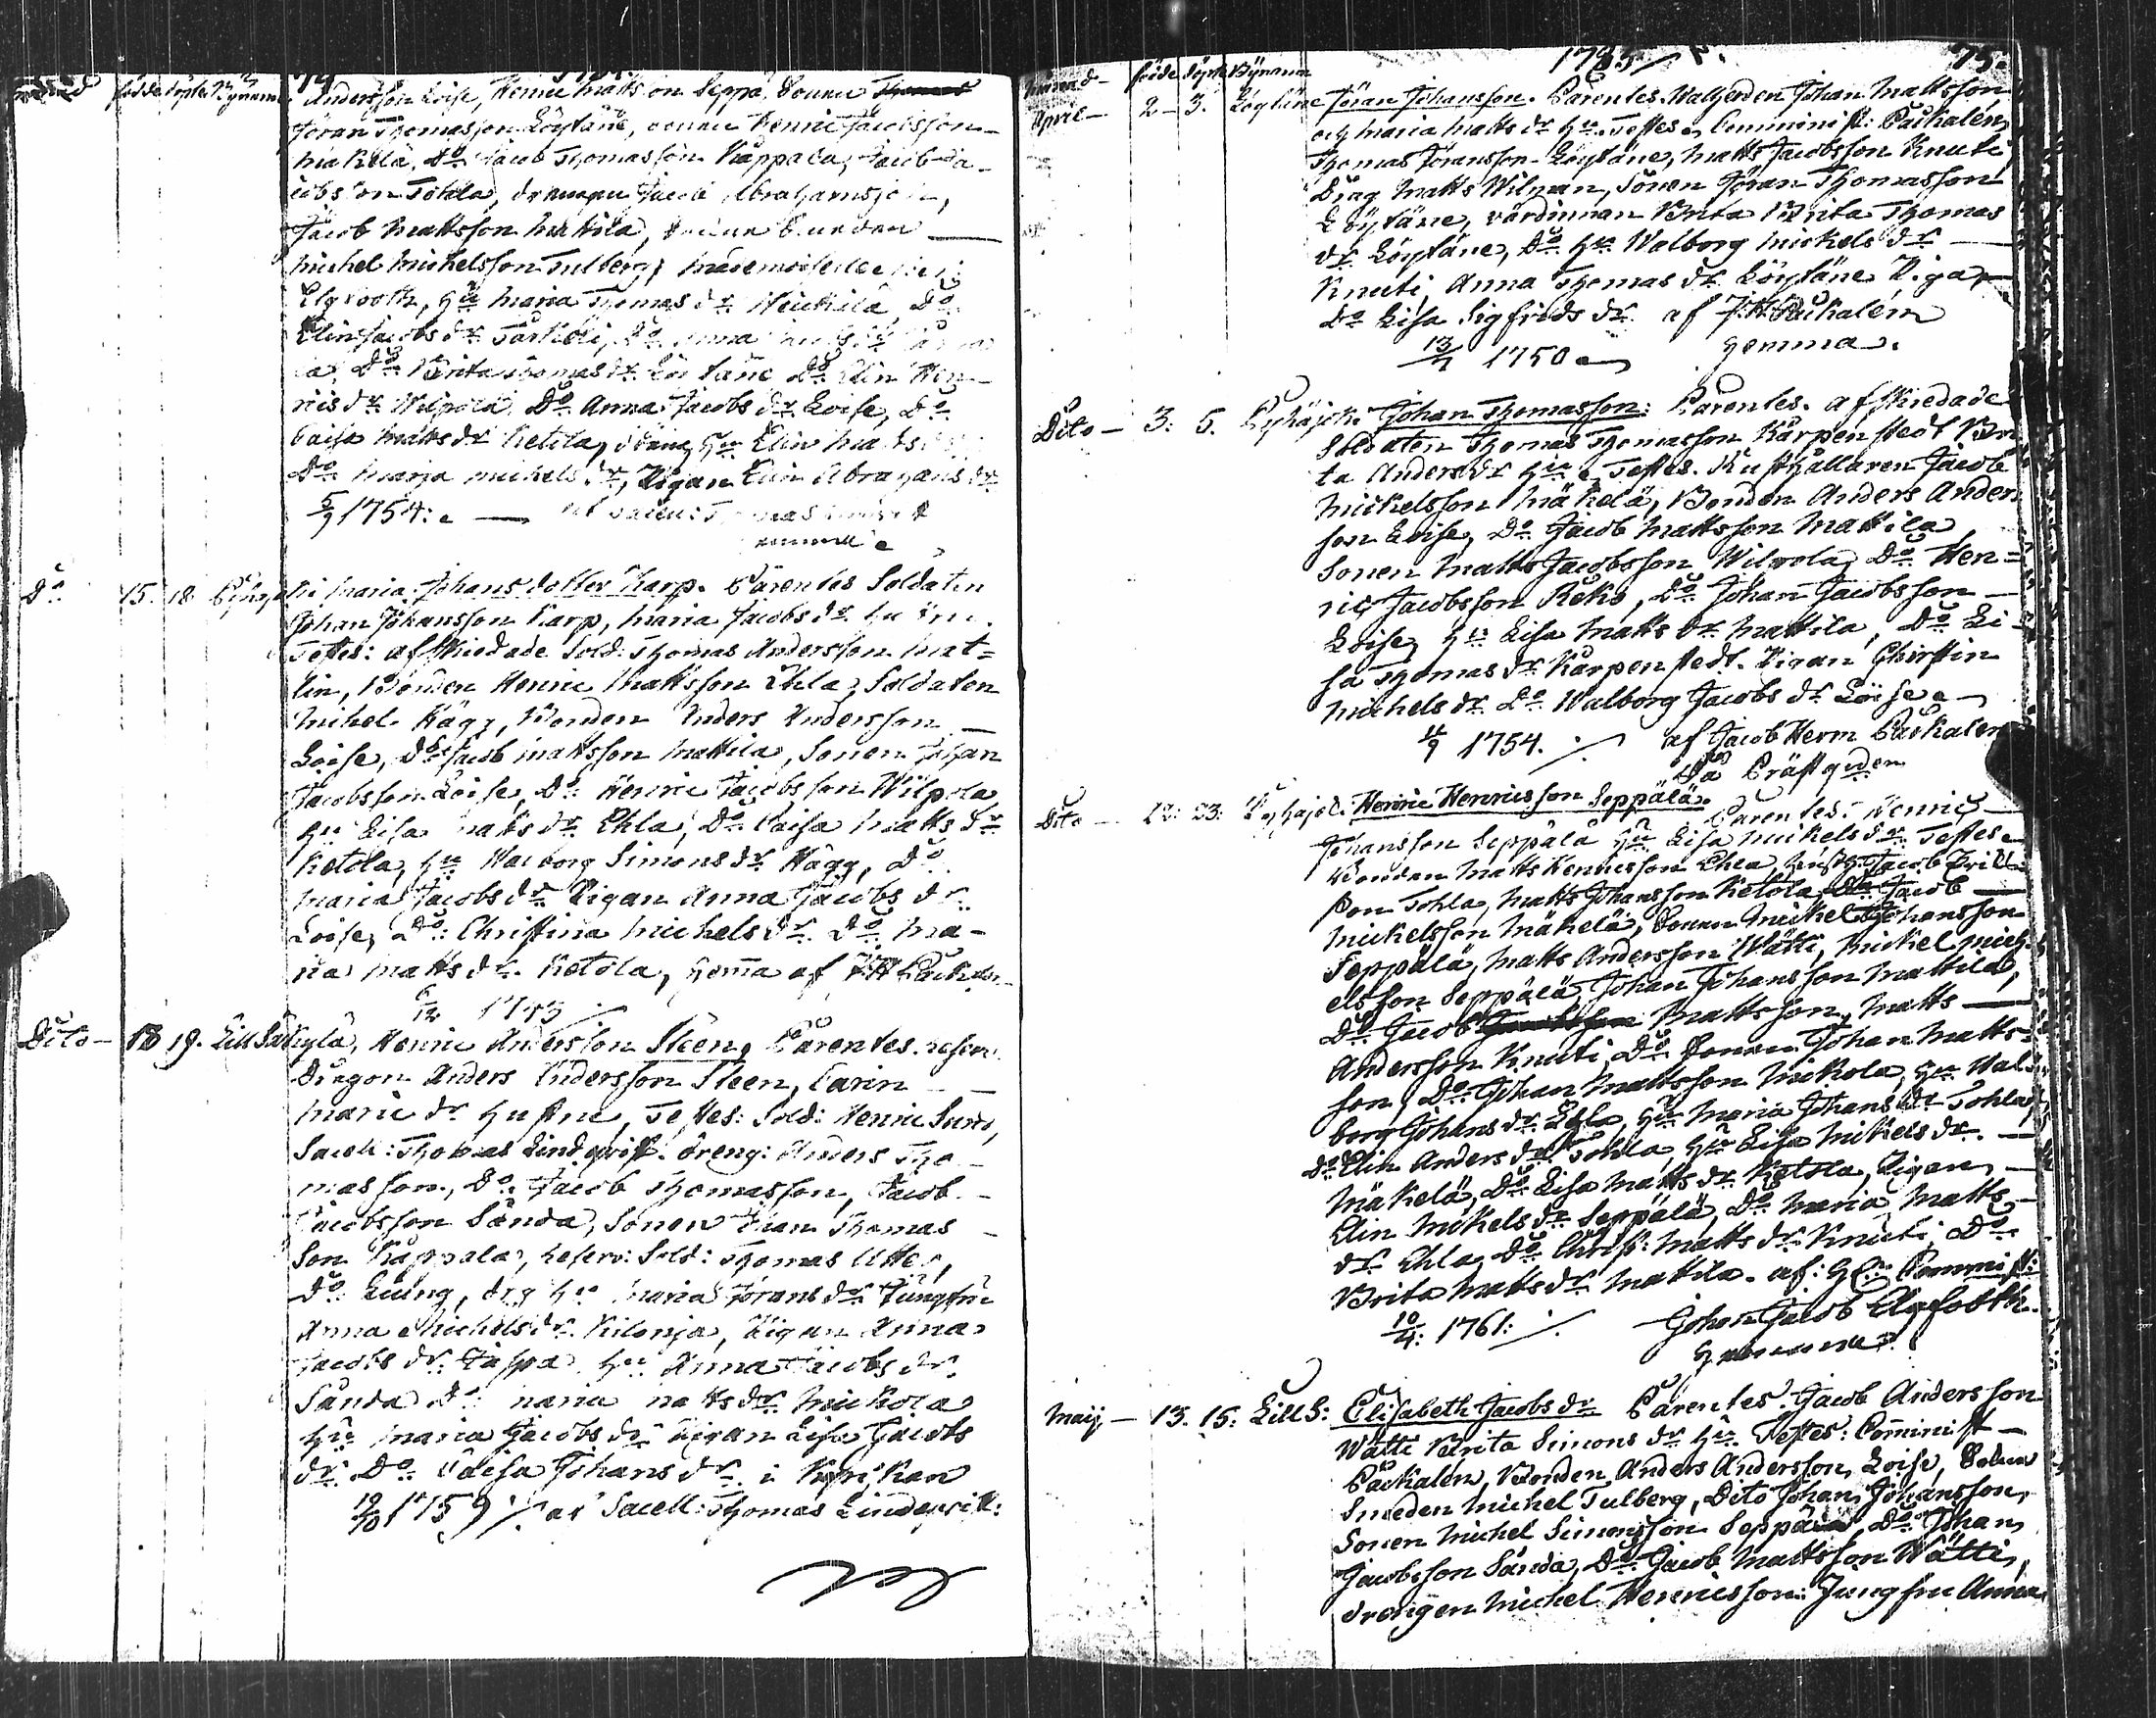 födde döpte Bynamn
Andersson Loise, Henric Mattsson Seppä, Sonen Thomas
Jöran Thomasson Löytäne, Henric Jacobsson
Mäkelä, Do Jacob Thomasson Kappala, Jacob Ja-
cobsson Tohla, Jacob Abrahamsson,
Jacob Mattsson Mattila,
Michel Michelsson Tulberg, Mademoiselle
Elgfooth, Hu Maria Thomas dr Heickilä, Do
Elin Jacobs dr Do Anna
Do Brita Thomas dr Löytäne Do Elin Hen-
ries dr Wilpola, Do Anna Jacobs dr Loise, Do
Caisa Matts dr Ketola, Hu Elin Matts
Do Marja Mickels dr, Pigan Elin Abrahams dr
5/9 1754:
Do 15. 18 Maria Johans dotter Karp. Parentes Soldaten
Johan Johansson Karp, Maria Jacobs dr
Testes: afskiedade Sold: Thomas Andersson Mat-
lin, Bonden Henric Mattsson Ehla, Soldaten
Michel Hägg, Bonden Anders Andersson
Loise, Do Jacob Mattsson Mattila, Sonen Johan
Jacobsson Loise, Do Henric Jacobsson Wilpola,
Hu Lisa Matts dr Ehla, Do Caisa Matts dr
Ketola, Hu Walborg Simons dr Hägg, Do
Maria Jacobs dr Pigan Anna Jacobs dr
Loise, Do Christina Michels dr Do Ma-
ria Matts dr Ketola, hema af JH Packalen
6/12
Dito — 18 19. Lill Säkylä, Henric Andersson Steen, Parentes reserv
Dragon Anders Andersson Steen, Carin
Marie dr Hustru, Testes: Sold: Henric Sund,
Sacell: Thomas Lindqvist. dreng: Anders Tho-
masson, Do Jacob Thomasson, Jacob
Jacobsson Sånda, Sonen Johan Thomas
son Kappala, reserv: Sold: Thomas Utter,
Do Liung, drg Hu Maria Jörans dr Jungfru
Anna Michels dr Kilonja, Pigan Anna
Jacobs dr Hu Anna Jacobs dr
Sånda Do Maria Matts dr Mickola
Hu Maria Jacobs dr Pigan Lisa Jacobs
dr Do Caisa Johans dr i Kyrckan
19/10 1759 af Sacell: Thomas Lindqvist:
1785 75.
Månad födde döpte Bynamn
April — 2 — 3. Löytäne Jöran Johansson. Parentes. Wallherden Johan Mattsson
och Maria Matts dr Hu. Testes Comminist: Packalén,
Thomas Jöransson Löytäne, Matts Jacobsson Knuti,
Drag Matts Wilman, Sonen Jöran Thomasson
Löytäne, värdinnan Brita Brita Thomas
dr Löytäne, Do Hu Walborg Mickels dr
Knuti, Anna Thomas dr Löytäne Piga,
Do Lisa Sigfrids dr af J.H. Packalén
13/7 1750 hemma.
Dito — 3: 5. Pyhäjoki Johan Thomasson: Parentes. afskiedade
Soldaten Thomas Thomasson Karpenstedt Bri
ta Anders dr Hu. Testes. Rusthållaren Jacob
Mickelsson Mäkelä, Bonden Anders Anders
son Loise, Do Jacob Mattsson Mattila
Sonen Matts Jacobsson Wilpola, Do Hen=
ric Jacobsson Reko, Do Johan Jacobsson
Loise, Hu Lisa Matts dr Mattila, Do Li-
sa Thomas dr Karpenstedt. Pigan Christin
Michels dr Do Walborg Jacobs dr Löise
11/9 1754. af Jacob Herm Packalen
På Prästgården
Dito — 23: Pyhäjoki: Henric Henricsson Seppälä. Parentes. Henric
Johansson Seppälä Hu Lisa Mickels dr Testes
Bonden Matts Henricsson Ehla, Jacob Erick
sson Tohla, Matts Johansson Ketola, Do Jacob
Mickelsson Mäkelä, Sonen Mickel Johansson
Seppälä, Matts Andersson Wätti, Mickel Mick
elsson Seppälä, Johan Johansson Mattila,
Do Jacob Mattsson, Matts
Andersson Knuti, Do Sonen Johan Matts
son, Do Johan Mattsson Mickola, Hu Wal
borg Johans dr Ehla, Hu Maria Johans dr Tohla,
Do Elin Anders dr Tohla, Hu Lisa Mickels dr
Mäkelä, Do Lisa Matts dr Ketola, Pigan
Elin Mickels dr Seppälä, Do Maria Matts
dr Ehla, Do Christ: Matts dr Knuti, Do
Brita Matts dr Mattila. af: Hr Commist:
10/4: 1761: Johan Jacob Elgfooth
hemma.
Maij — 13. 15: Lill S: Elisabeth Jacobs dr Parentes. Jacob Andersson
Wätti Brita Simons dr Hu Testes: Cominist
Packalén, Bonden Anders Andersson Loise, Sonen
Smeden Michel Tulberg, Dito Johan Johansson,
Sonen Michel Simonsson Seppälä Do Johan
Jacobsson Sånda, Do Jacob Mattsson Wätti,
drängen Michel Henricsson: Jungfru Anna